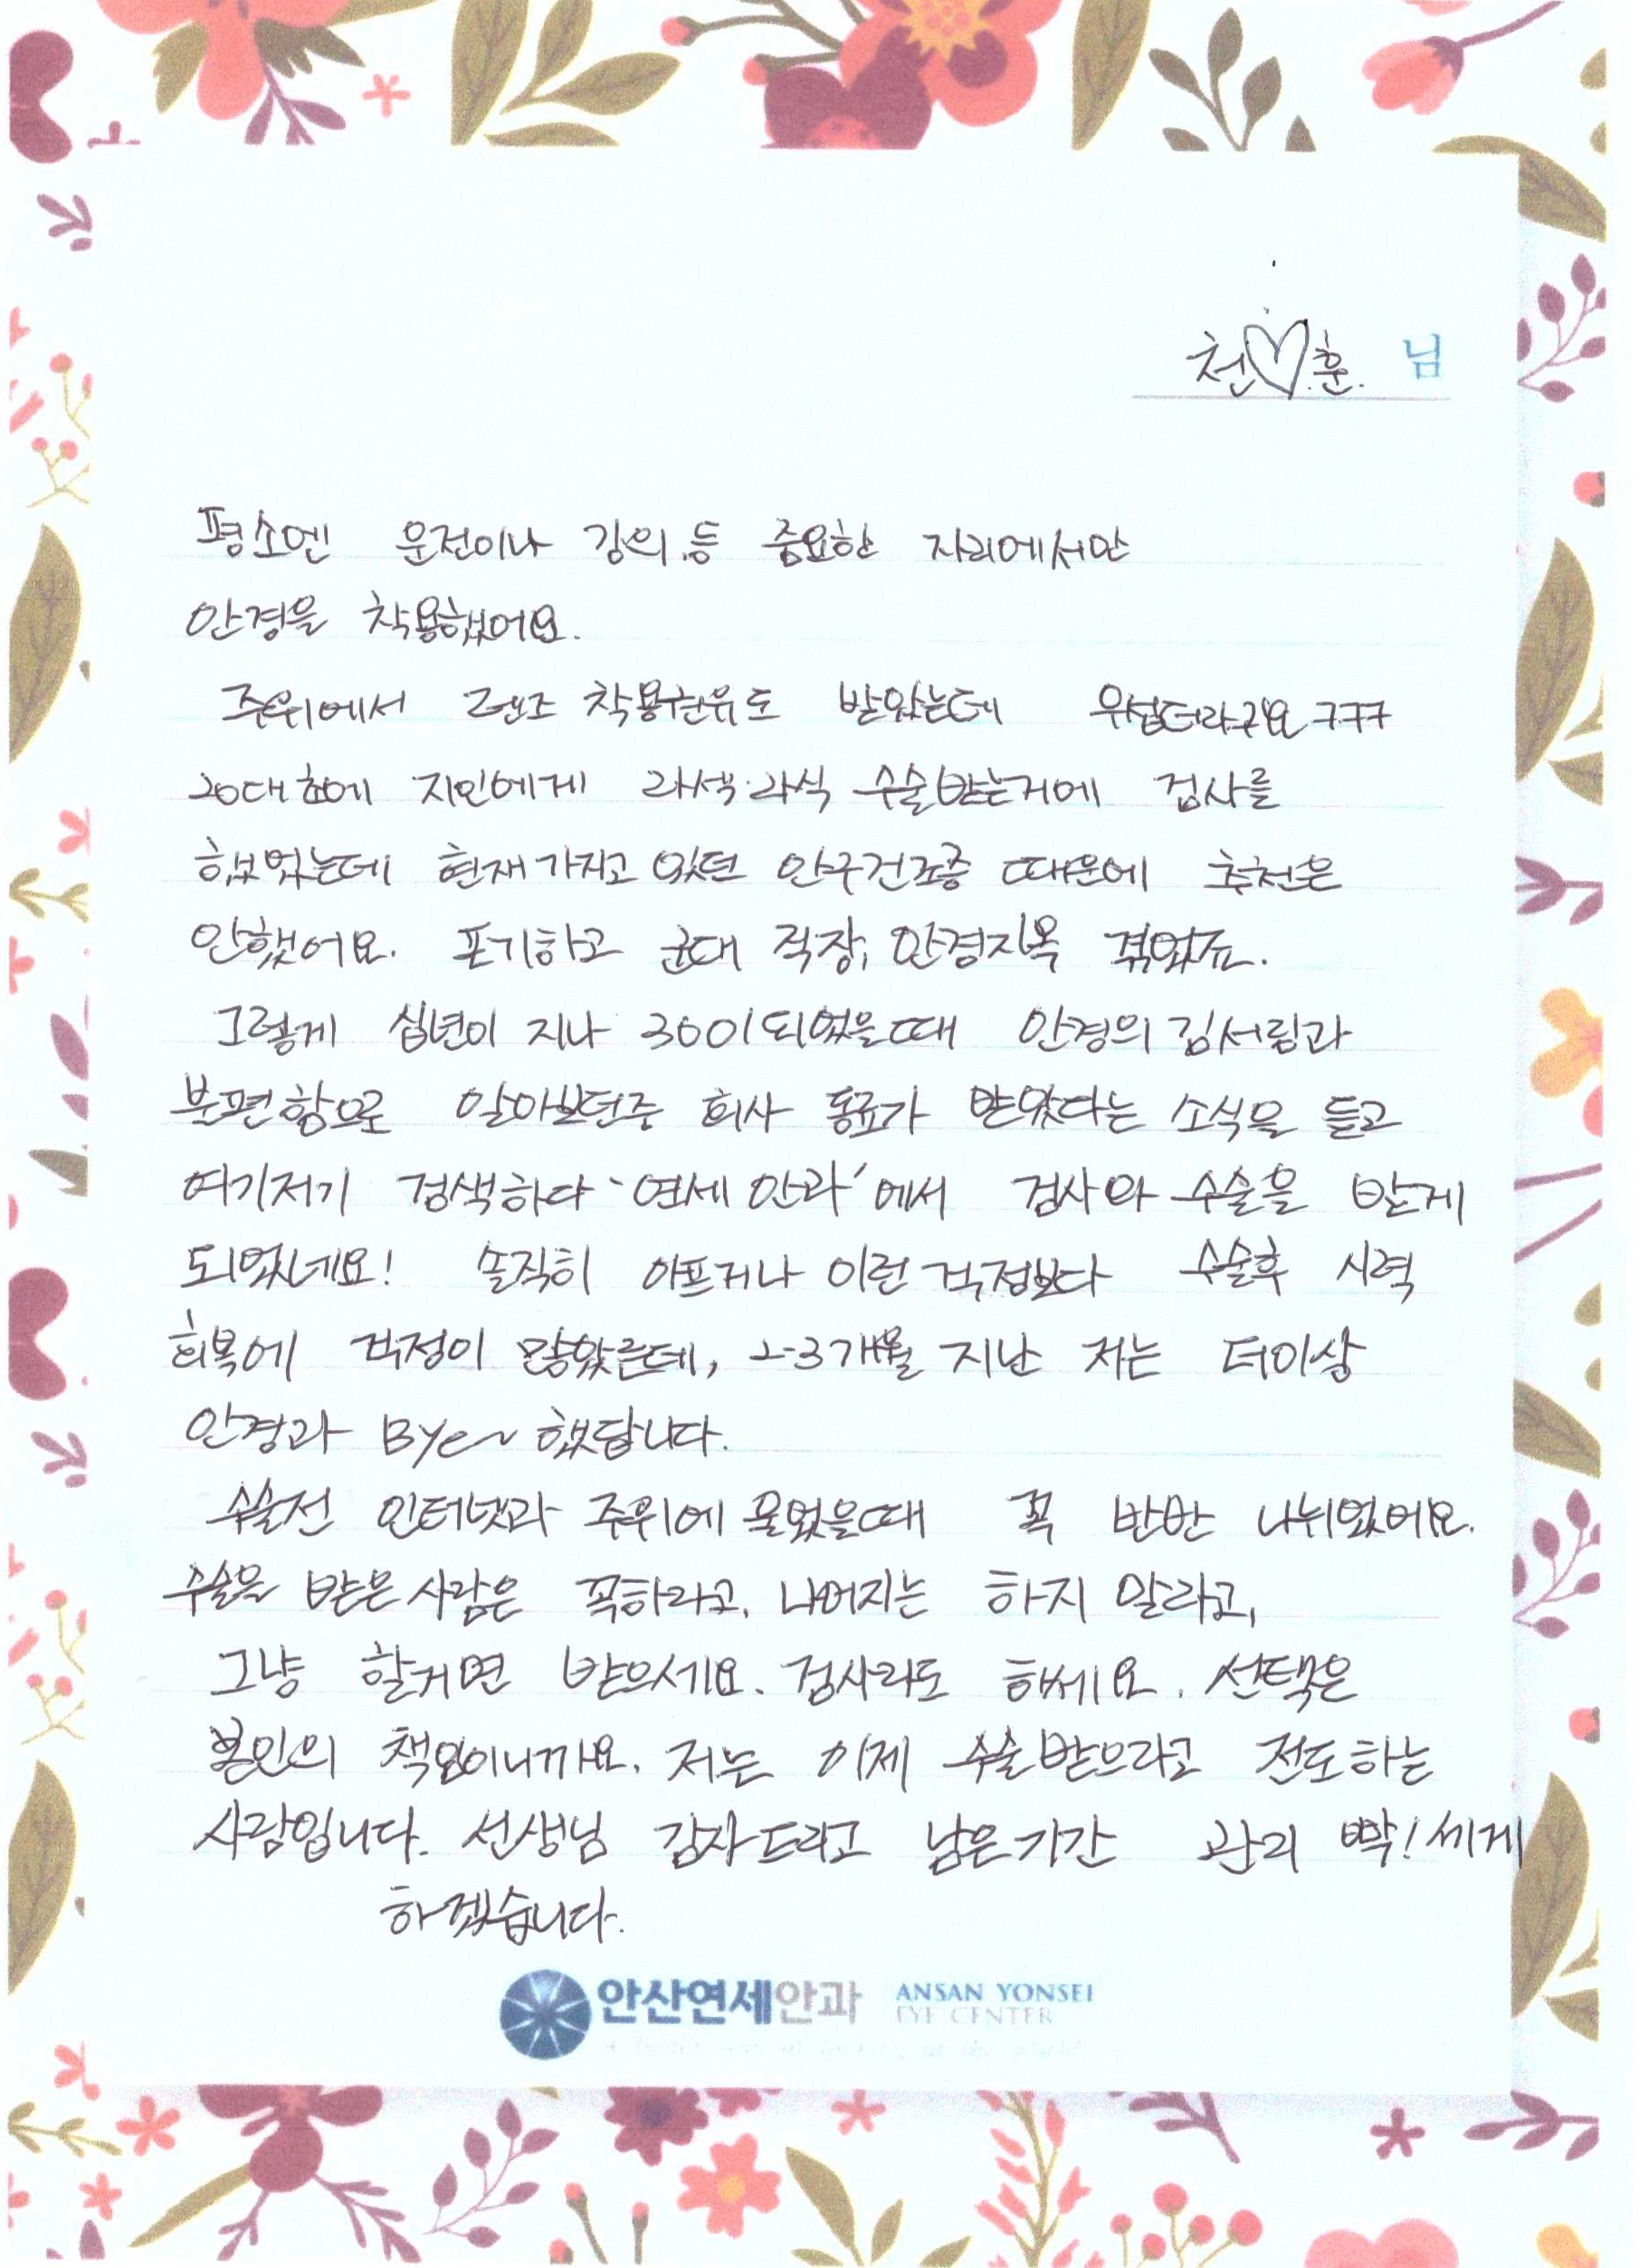 천♡훈. 님
평소엔 운전이나 강의 등 중요한 자리에서만
안경을 착용했어요.
주위에서 렌즈 착용권유도 받았는데 무섭더라구요 ㅋㅋㅋ
20대 초에 지인에게 라섹·라식 수술받는거에 검사를
해보았는데 현재 가지고 있던 안구건조증 때문에 추천은
안했어요. 포기하고 군대 직장, 안경지옥 겪었쥬.
그렇게 십년이 지나 30이 되었을때 안경의 김서림과
불편함으로 알아보던중 회사 동료가 받았다는 소식을 듣고
여기저기 검색하다 '연세안과'에서 검사와 수술을 받게
되었네요! 솔직히 아프거나 이런 걱정보다 수술후 시력
회복에 걱정이 많았는데, 2-3개월 지난 저는 더이상
안경과 Bye~ 했답니다.
수술전 인터넷과 주위에 물었을때 꼭 반반 나뉘었어요.
수술을 받은 사람은 꼭하라고, 나머지는 하지 말라고,
그냥 할거면 받으세요. 검사라도 하세요. 선택은
본인의 책임이니까요. 저는 이제 수술받으라고 전도하는
사람입니다. 선생님 감사드리고 남은기간 관리 빡!세게
하겠습니다.
안산연세안과 ANSAN YONSEI
EYE CENTER